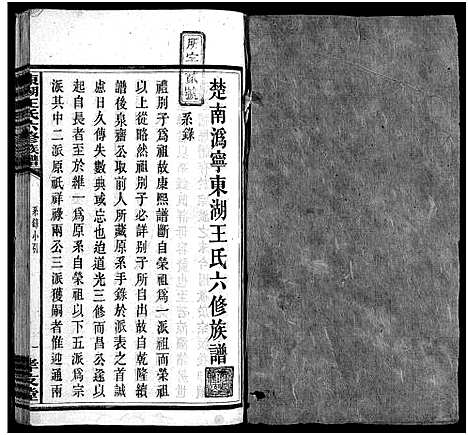 楚南溈寧東湖王氏六修族譜
系錄
禮別子為祖故康熙譜斷自榮祖為一派而榮祖
以上從畧然祖別子必詳別子所自出故自乾隆續
譜後泉齋公取前人所藏原系手錄於派表之首誠
慮日久傳失數典或忘也迨道光三修而昌公遂以
起自長者至於維一為原系自榮祖以下五派為宗
派其中二派原祇祥祿兩公三派獲嗣者惟迎通南
東湖王氏六修族譜
系錄小引
一
孝友堂